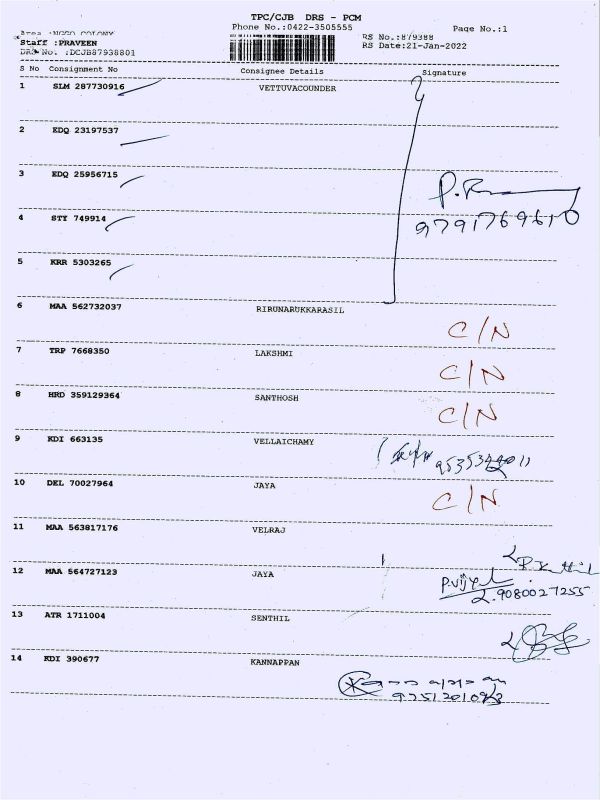 TPC/CJB DRS - PCM
Phone No.:0422-3505555
Page No.:1
Area :NGGO COLONY
RS No.:879388
Staff :PRAVEEN
RS Date:21-Jan-2022
DRS No. :DCJB87938801
S No Consignment No Consignee Details Signature
1 SLM 287730916 VETTUVACOUNDER
2 EDQ 23197537
3 EDQ 25956715
4 STY 749914
9791769610
5 KRR 5303265
6 MAA 562732037 RIRUNARUKKARASIL
C/N
7 TRP 7668350 LAKSHMI
C/N
8 HRD 359129364 SANTHOSH
C/N
9 KDI 663135 VELLAICHAMY
10 DEL 70027964 JAYA
C/N
11 MAA 563817176 VELRAJ
12 MAA 564727123 JAYA
9080027255
13 ATR 1711004 SENTHIL
14 KDI 390677 KANNAPPAN